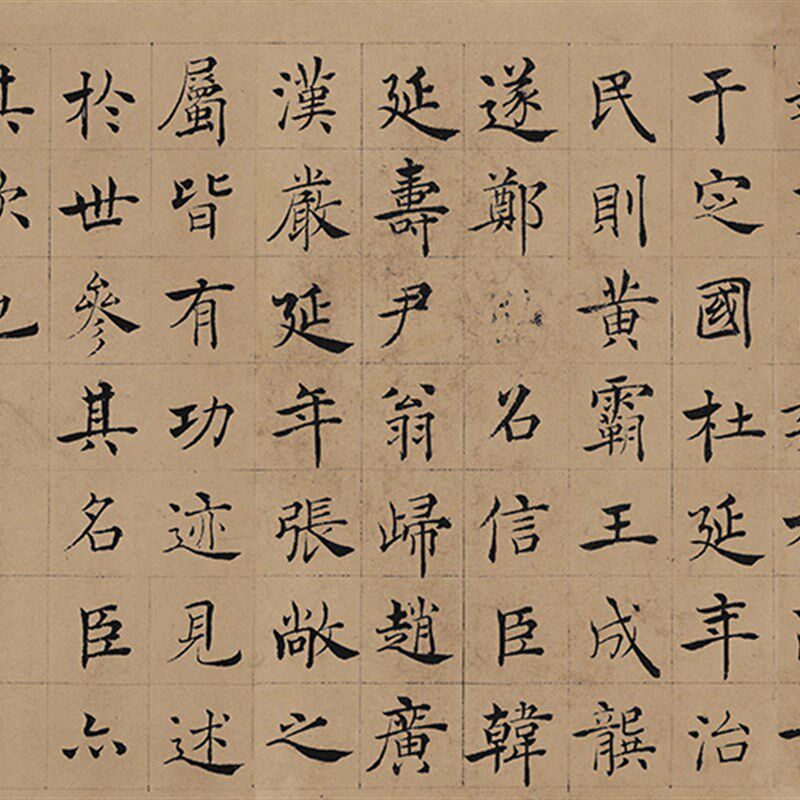 于定國杜延年治
民則黃霸王成龔
遂鄭召信臣韓
延壽尹翁歸趙廣
漢嚴延年張敞之
屬皆有功迹見述
於世參其名臣亦
其次也